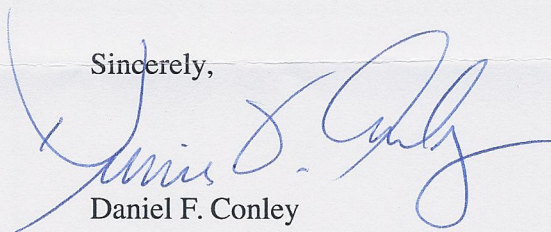 Sincerely,
Daniel F. Conley
Daniel F. Conley